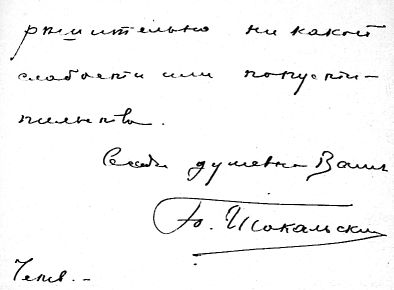 рѣшительно никакой
слабости или попусти-
тельства.
Всегда душевно Вашъ
Ю. Шокальскій
Четв.-